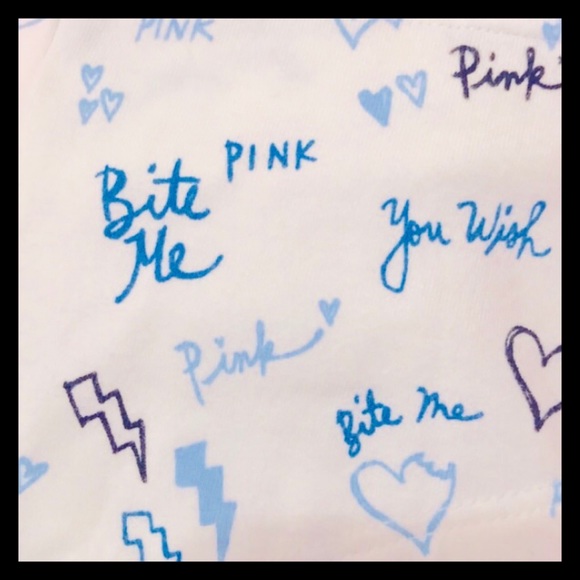 PINK
Pink
PINK
Bite
Me
You Wish
Pink
Bite Me